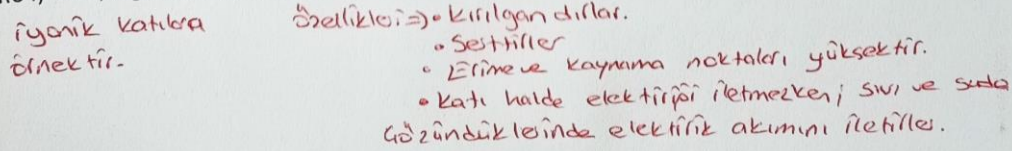 iyonik katılara
örnektir.
Özellikleri => • Kırılgandırlar.
• Serttirler
• Erime ve kaynama noktaları yüksektir.
• Katı halde elektiriği iletmezken; sıvı ve suda
çözündüklerinde elektirik akımını iletirler.